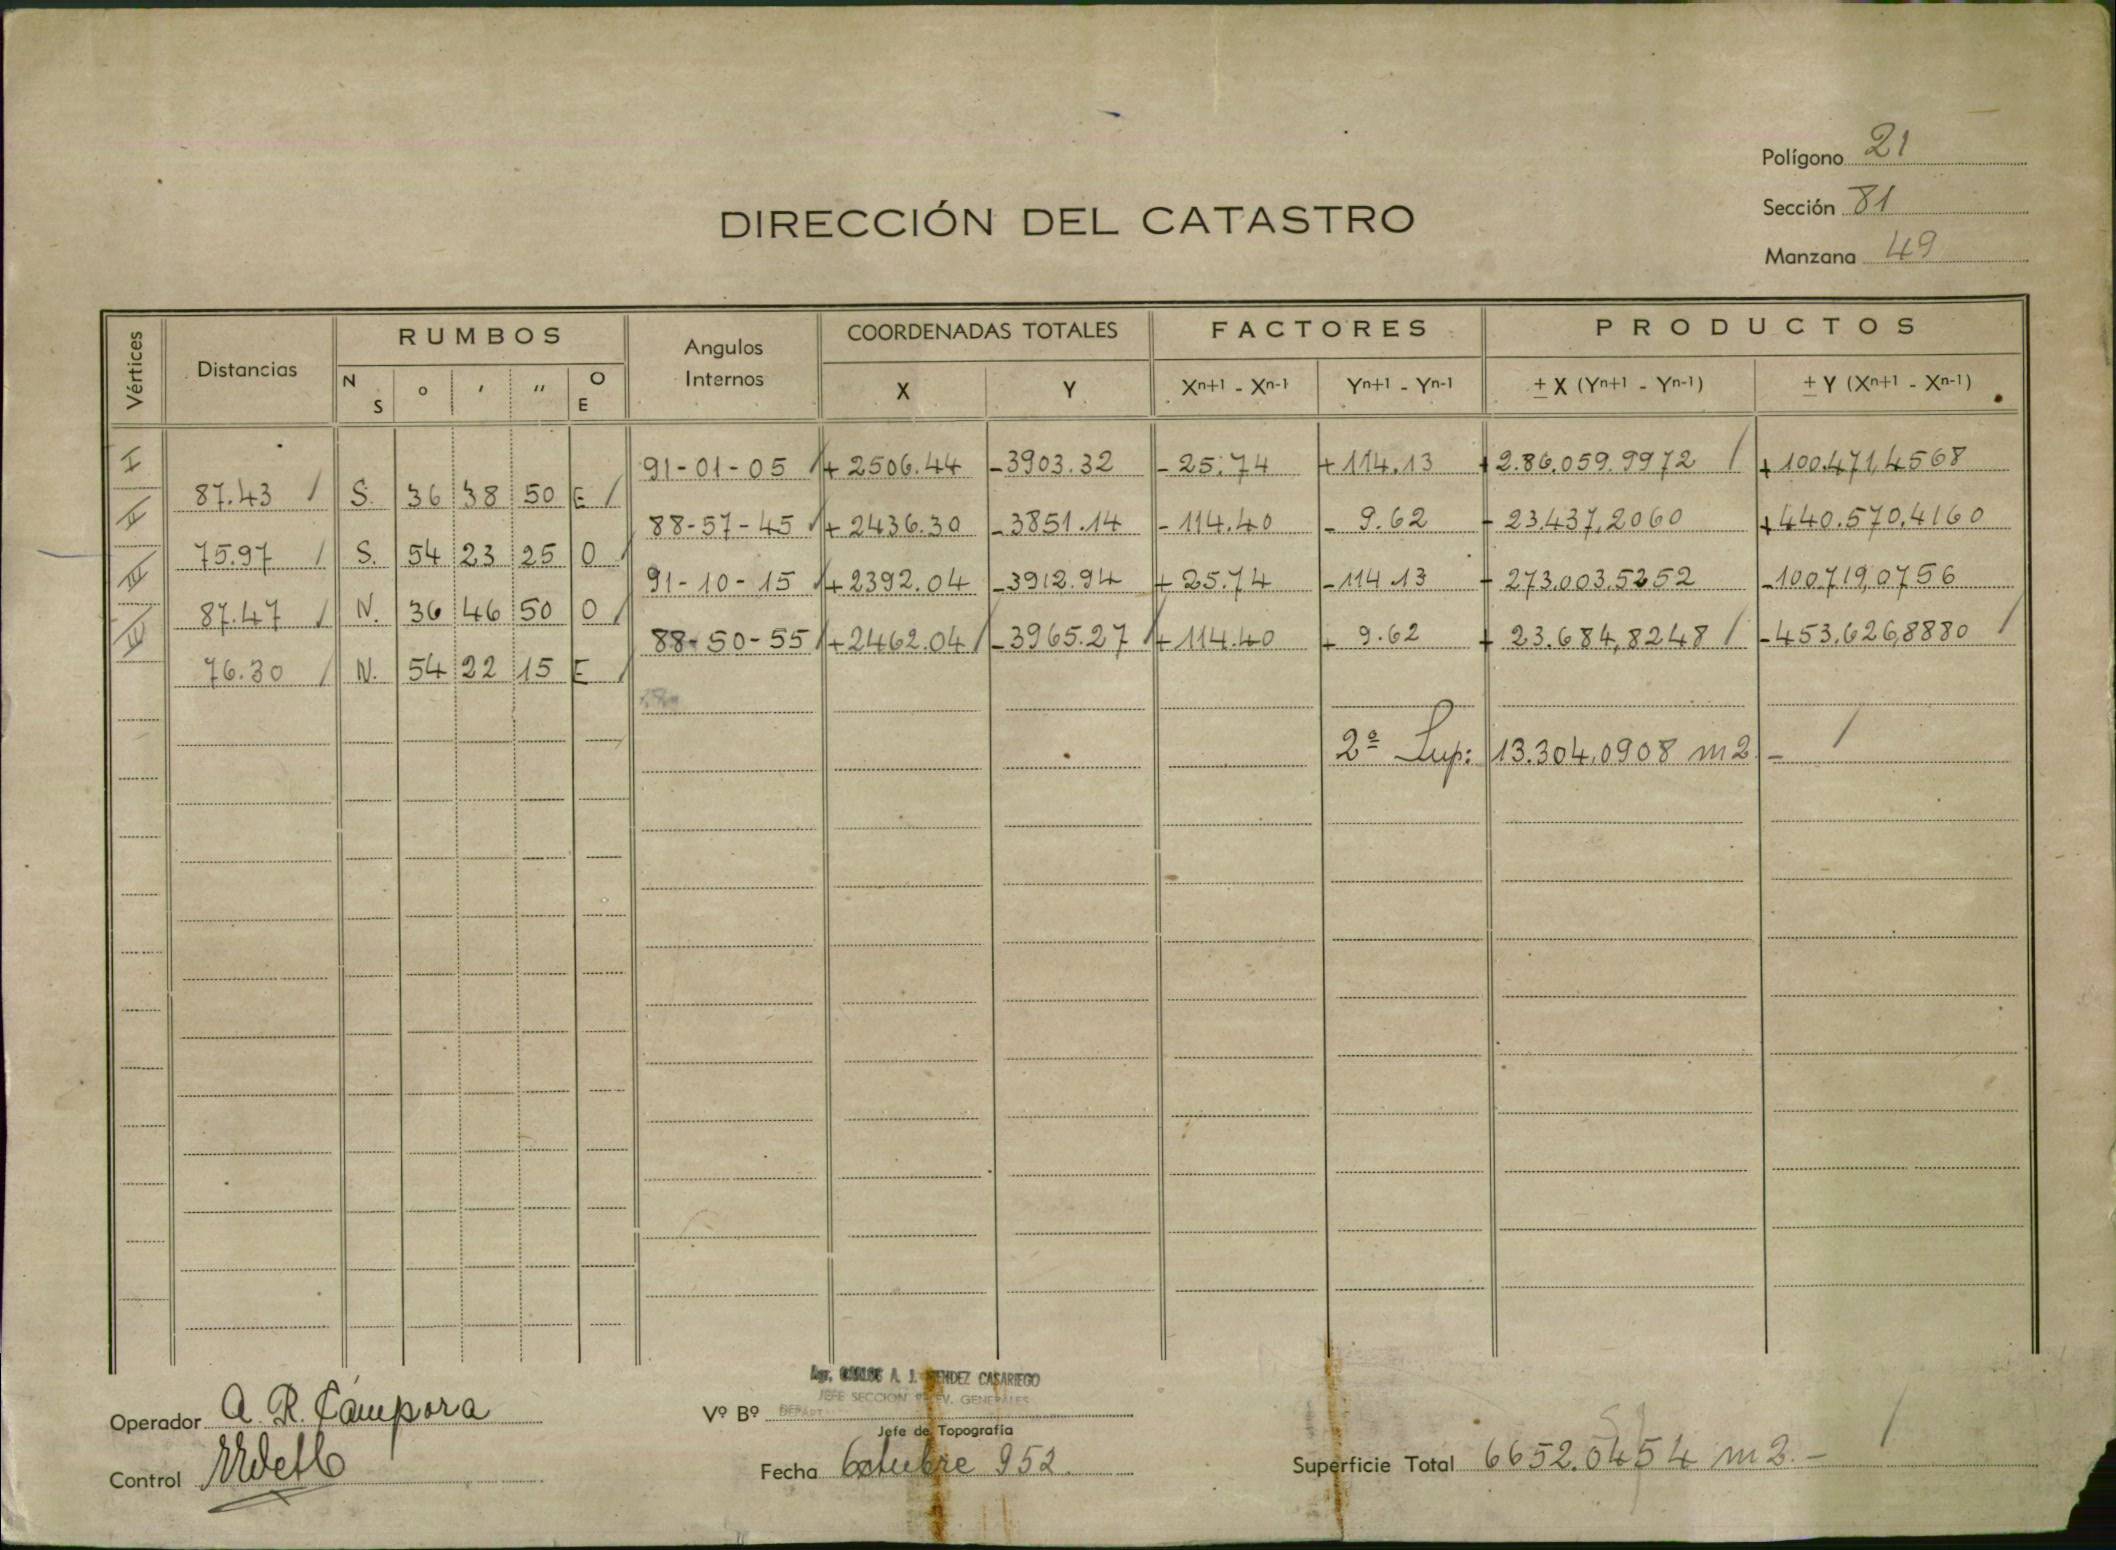 Polígono 21
Sección 81
Manzana 49
DIRECCIÓN DEL CATASTRO
Vértices Distancias RUMBOS Angulos Internos COORDENADAS TOTALES FACTORES PRODUCTOS
N S ° ′ ″ O E X Y Xn+1 - Xn-1 Yn+1 - Yn-1 ± X (Yn+1 - Yn-1) ± Y (Xn+1 - Xn-1)
I 91-01-05 +2506.44 -3903.32 -25.74 +114.13 +2.86.059.9972 +100.471,4568
87.43 S. 36 38 50 E
II 88-57-45 +2436.30 -3851.14 -114.40 - 9.62 - 23.437,2060 +440.570,4160
75.97 S. 54 23 25 O
III 91-10-15 +2392.04 -3912.94 +25.74 -114.13 - 273.003,5252 -100.719,0756
87.47 N. 36 46 50 O
IV 88-50-55 +2462.04 -3965.27 +114.40 + 9.62 + 23.684,8248 -453.626,8880
76.30 N. 54 22 15 E
2ª Sup: 13.304,0908 m2 -
Agr. CARLOS A. J. MENDEZ CASARIEGO
JEFE SECCION GENERALES
Operador A. R. Cámpora
Vº Bº
Jefe de Topografía
Control
Fecha Octubre 952.
Superficie Total 6652.0454 m2.-